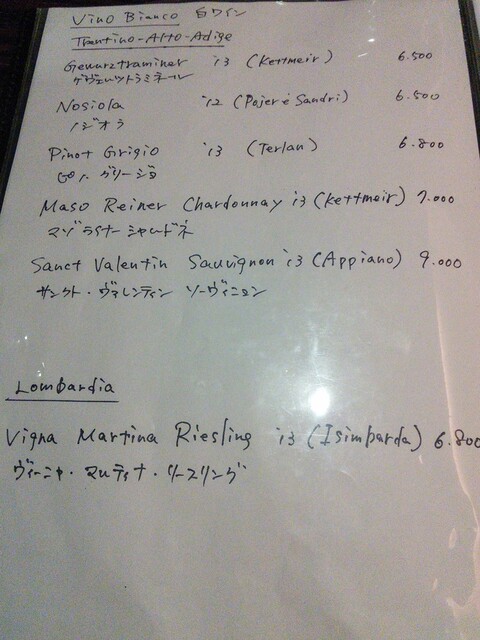 Vino Bianco 白ワイン
Trentino-Alto-Adige
Gewurztraminer '13 (Kettmeir) 6.500
ゲヴェルツトラミネール
Nosiola '12 (Pojer é Sandri) 6.500
ノジオラ
Pinot Grigio '13 (Terlan) 6.800
ピノ・グリージョ
Maso Reiner Chardonnay '13 (Kettmeir) 7.000
マゾ ライナー シャルドネ
Sanct Valentin Sauvignon '13 (Appiano) 9.000
サンクト・ヴァレンティン ソーヴィニョン
Lombardia
Vigna Martina Riesling '13 (Isimbarda) 6.800
ヴィーニャ・マルティナ・リースリング